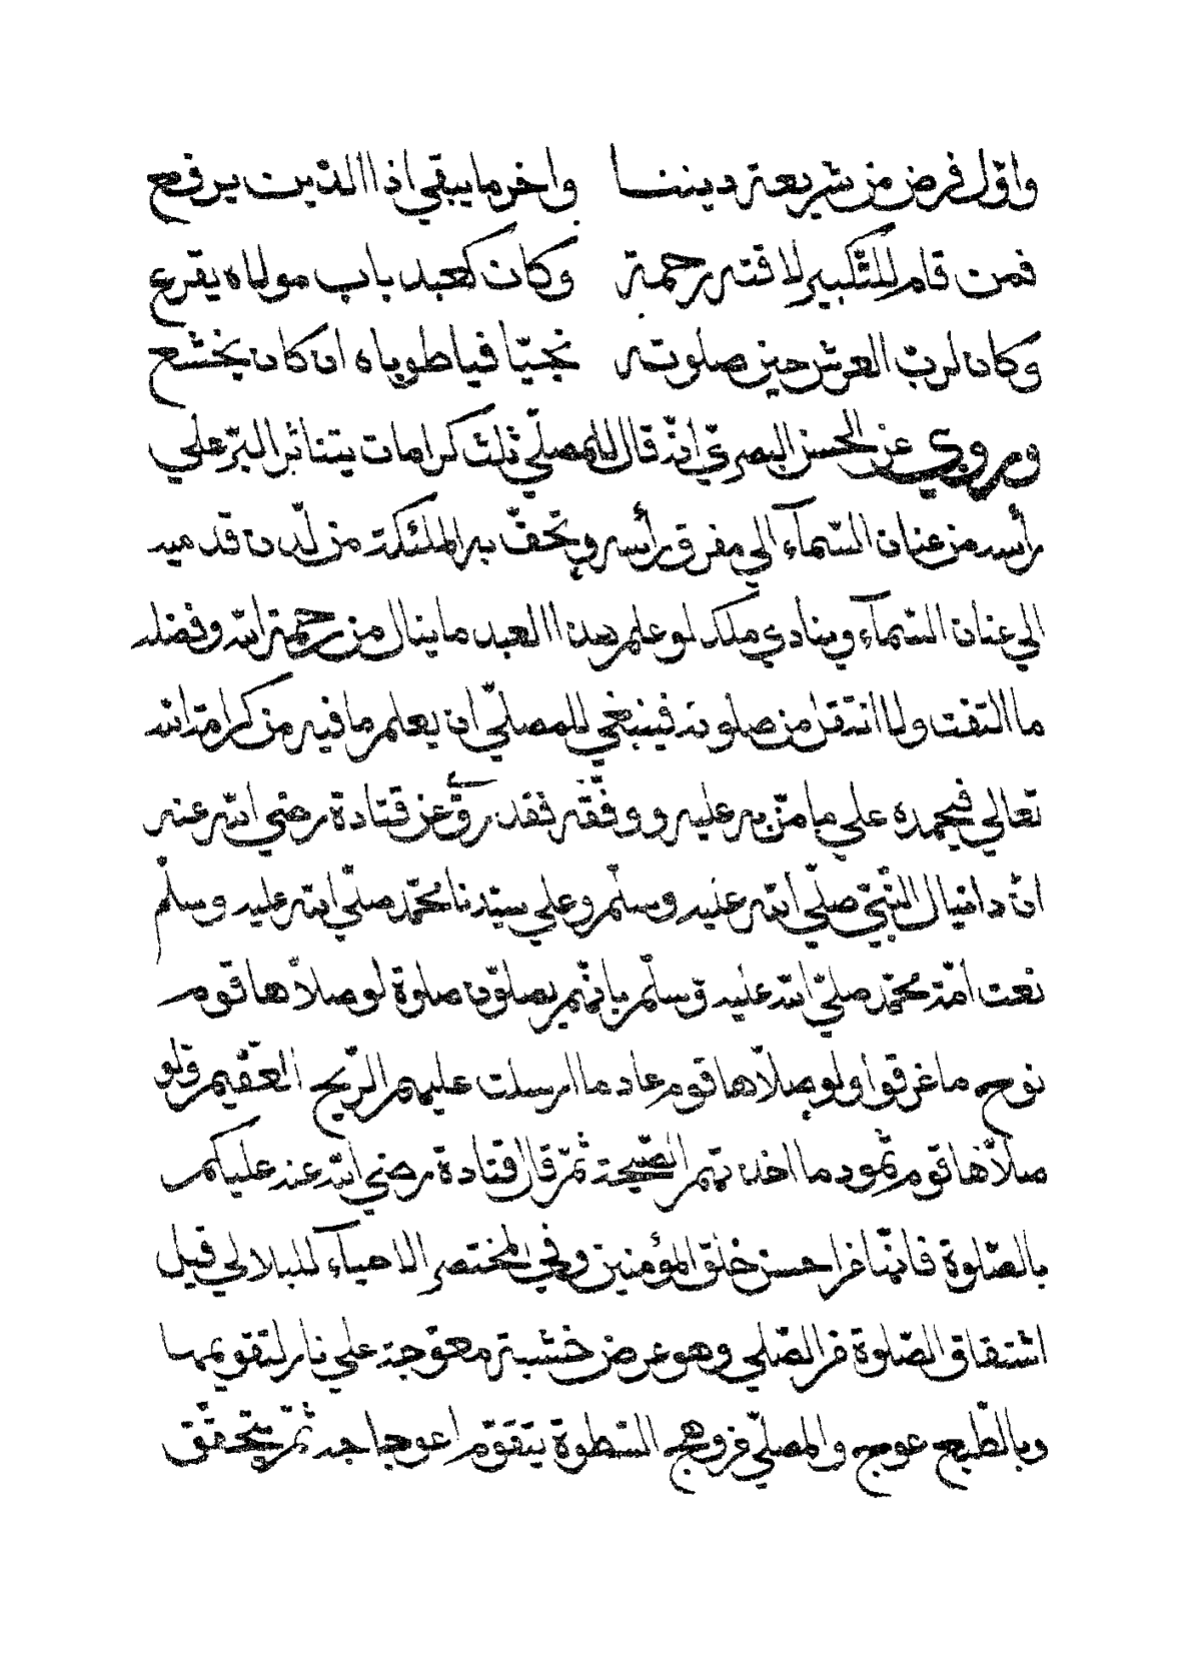 واوّل فرض من شريعة ديننا واخر ما يبقي اذا الدّين يرفع
فمن قام للتّكبير لاقته رحمة وكان كعبد باب مولاه يقرع
وكان لربّ العرش حين صلوته نجيّا فيا طوباه ان كان يخشع
وروي عن الحسن البصريّ انّه قال للمصلّي ثلث كرامات يتناثر البرّ علي
رأسه من عنان السّمآء الي مفرق رأسه وتحفّ به الملئكة من لّدن قدميه
الي عنان السّمآء وينادي ملك لو علم هذا العبد ما ينال من رحمة الله وفضله
ما التفت ولا انتقل من صلوته فينبغي للمصلّي ان يعلم ما فيه من كرامة الله
تعالي فيحمده علي ما منّ به عليه ووفّقه فقد روي عن قتادة رضي الله عنه
انّ دانيال النّبيّ صلّي الله عليه وسلّم وعلي سيّدنا محمّد صلّي الله عليه وسلّم
نعت امّة محمّد صلّي الله عليه وسلّم بانّهم يصلّون صلوة لو صلاّها قوم
نوح ما غرقوا ولو صلاّها قوم عاد ما ارسلت عليهم الرّيح العقيم ولو
صلاّها قوم ثمود ما اخذتهم الصّيحة ثمّ قال قتادة رضي الله عنه عليكم
بالصّلوة فانّها من احسن خلق المؤمنين وفي المختصر الاحياء للبلالي قيل
اشتقاق الصّلوة من الصّلي وهو عرض خشبة معوّجة علي نار لتقويمها
وبالطّبع عوج والمصلّي من وهج السّطوة يتقوّم اعوجاجه ثمّ يتحقّق